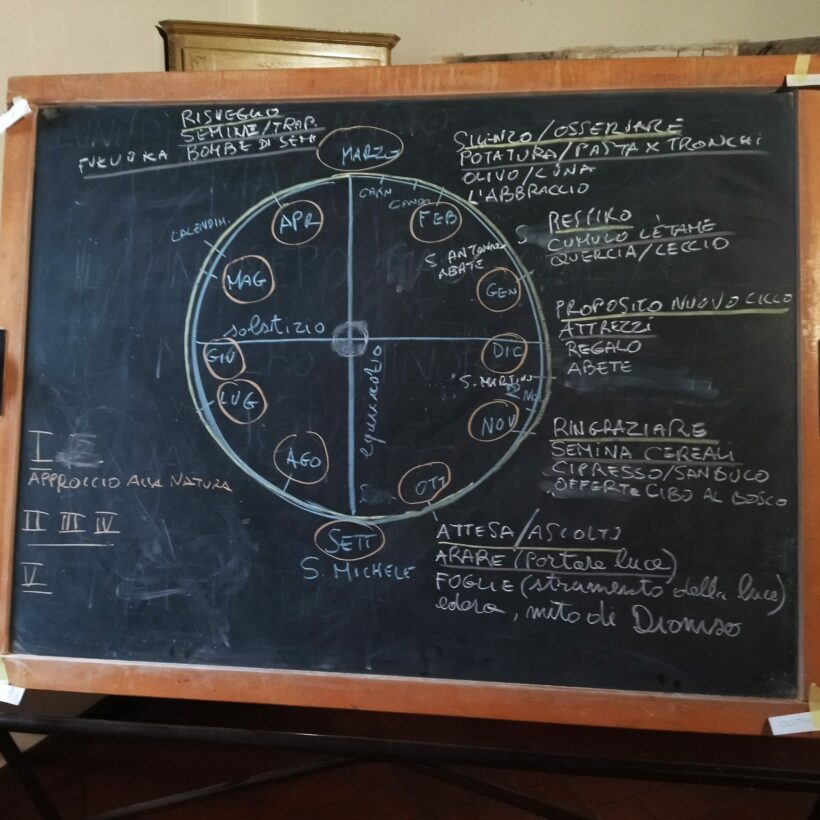 RISVEGLIO
SEMINE/TRAP.
FUKUOKA BOMBE DI SEMI
MARZO
SILENZO/OSSERVARE
POTATURA/PASTA X TRONCHI
OLIVO/LUNA
L'ABBRACCIO
CARN
CANDEL
APR
FEB
CALENDIM.
S. ANTONIO
ABATE
MAG
GEN
RESPIRO
CUMULO LETAME
QUERCIA/LECCIO
solstizio
equinozio
PROPOSITO NUOVO CICLO
ATTREZZI
REGALO
ABETE
GIU
DIC
S. MARTINO
LUG
NOV
RINGRAZIARE
SEMINA CEREALI
CIPRESSO/SANBUCO
OFFERTE CIBO AL BOSCO
AGO
OTT
SETT
S. MICHELE
I
APPROCCIO ALLA NATURA
II III IV
V
ATTESA/ASCOLTO
ARARE (portare luce)
FOGLIE (strumento della luce)
edera, mito di Dioniso